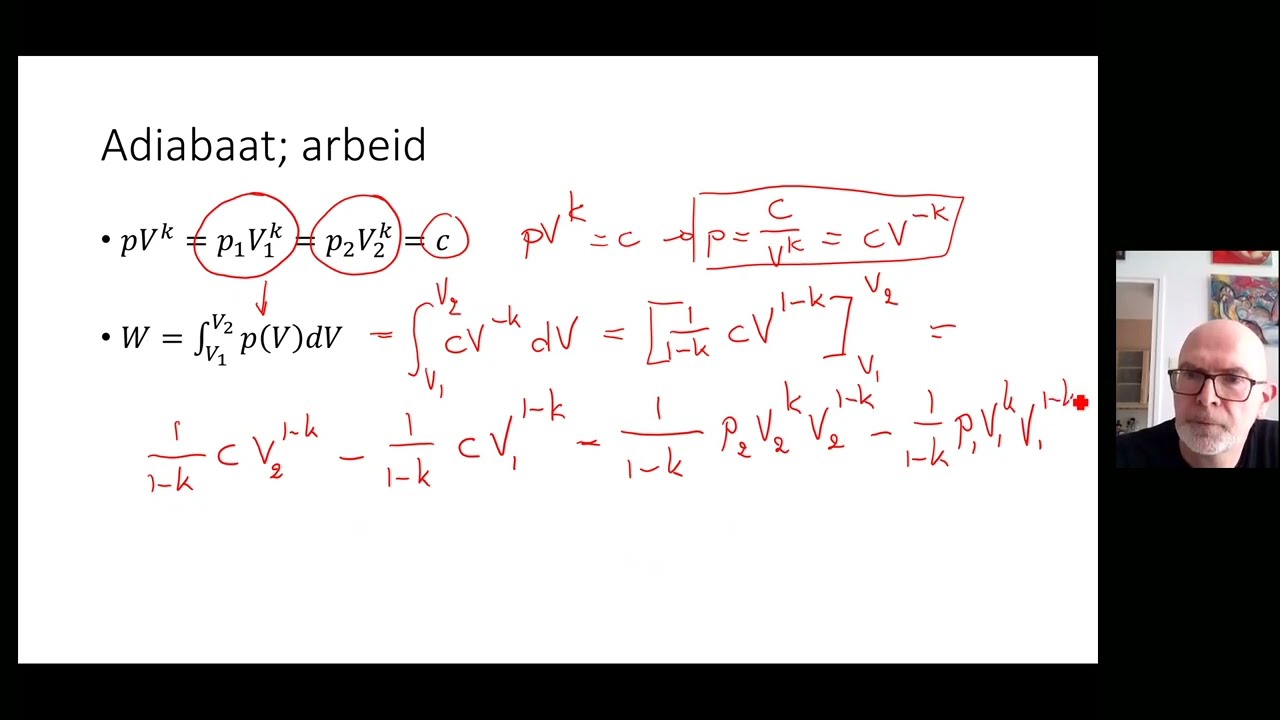 Adiabaat; arbeid
• pVᵏ = p₁V₁ᵏ = p₂V₂ᵏ = c pVᵏ = c → p = c/Vᵏ = cV⁻ᵏ
• W = ∫_{V₁}^{V₂} p(V)dV = ∫_{V₁}^{V₂} cV⁻ᵏ dV = [1/(1-k) cV^{1-k}]_{V₁}^{V₂} =
1/(1-k) c V₂^{1-k} - 1/(1-k) c V₁^{1-k} = 1/(1-k) p₂V₂ᵏ V₂^{1-k} - 1/(1-k) p₁V₁ᵏ V₁^{1-k}